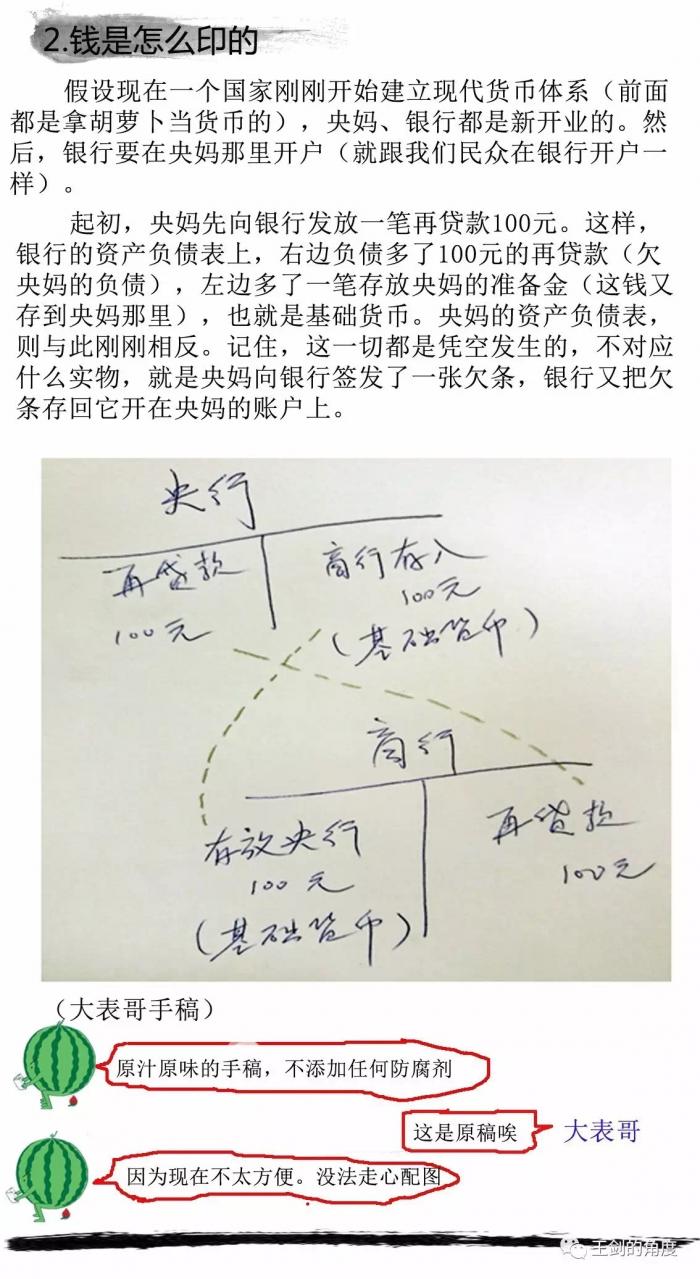 2.钱是怎么印的
假设现在一个国家刚刚开始建立现代货币体系（前面
都是拿胡萝卜当货币的），央妈、银行都是新开业的。然
后，银行要在央妈那里开户（就跟我们民众在银行开户一
样）。
起初，央妈先向银行发放一笔再贷款100元。这样，
银行的资产负债表上，右边负债多了100元的再贷款（欠
央妈的负债），左边多了一笔存放央妈的准备金（这钱又
存到央妈那里），也就是基础货币。央妈的资产负债表，
则与此刚刚相反。记住，这一切都是凭空发生的，不对应
什么实物，就是央妈向银行签发了一张欠条，银行又把欠
条存回它开在央妈的账户上。
央行
再贷款
100元
商行存入
100元
（基础货币）
商行
存放央行
100元
（基础货币）
再贷款
100元
（大表哥手稿）
原汁原味的手稿，不添加任何防腐剂
这是原稿唉
大表哥
因为现在不太方便。没法走心配图
王剑的角度